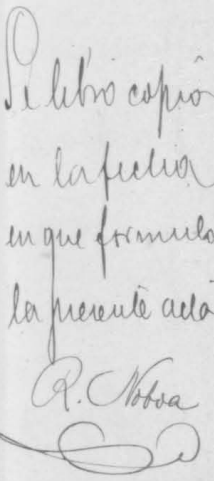 Se libró copia
en la fecha
en que formulo
la presente acta
R. Novoa